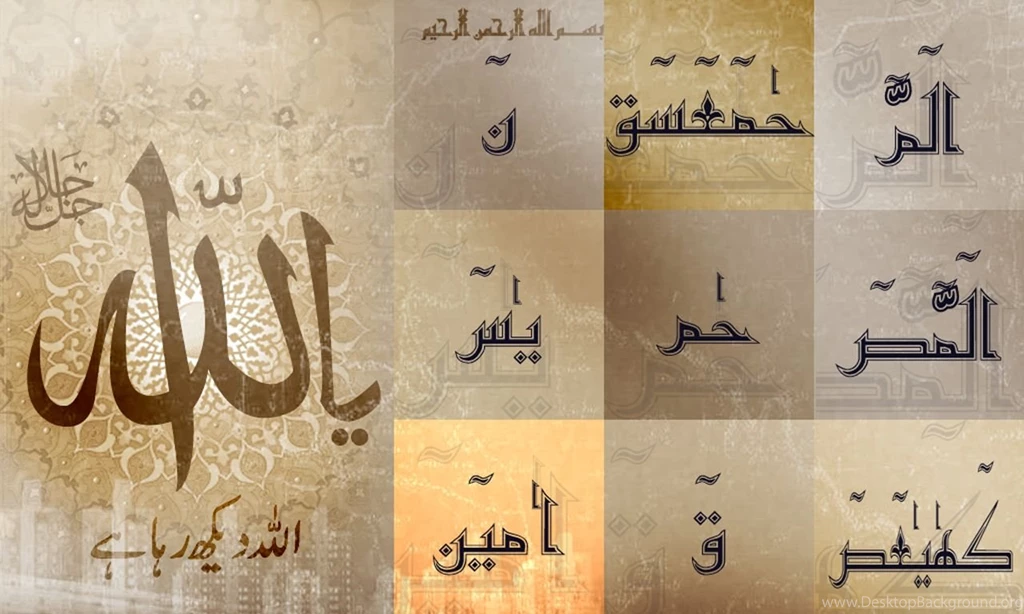 بسم الله الرحمن الرحيم
جل جلاله
يا الله
الله دیکھ رہا ہے
الٓمّٓ
حٰمٓعٓسٓقٓ
نٓ
الٓمّٓصٓ
حٰمٓ
يٰسٓ
كٓهٰيٰعٓصٓ
قٓ
آمين
www.DesktopBackground.org